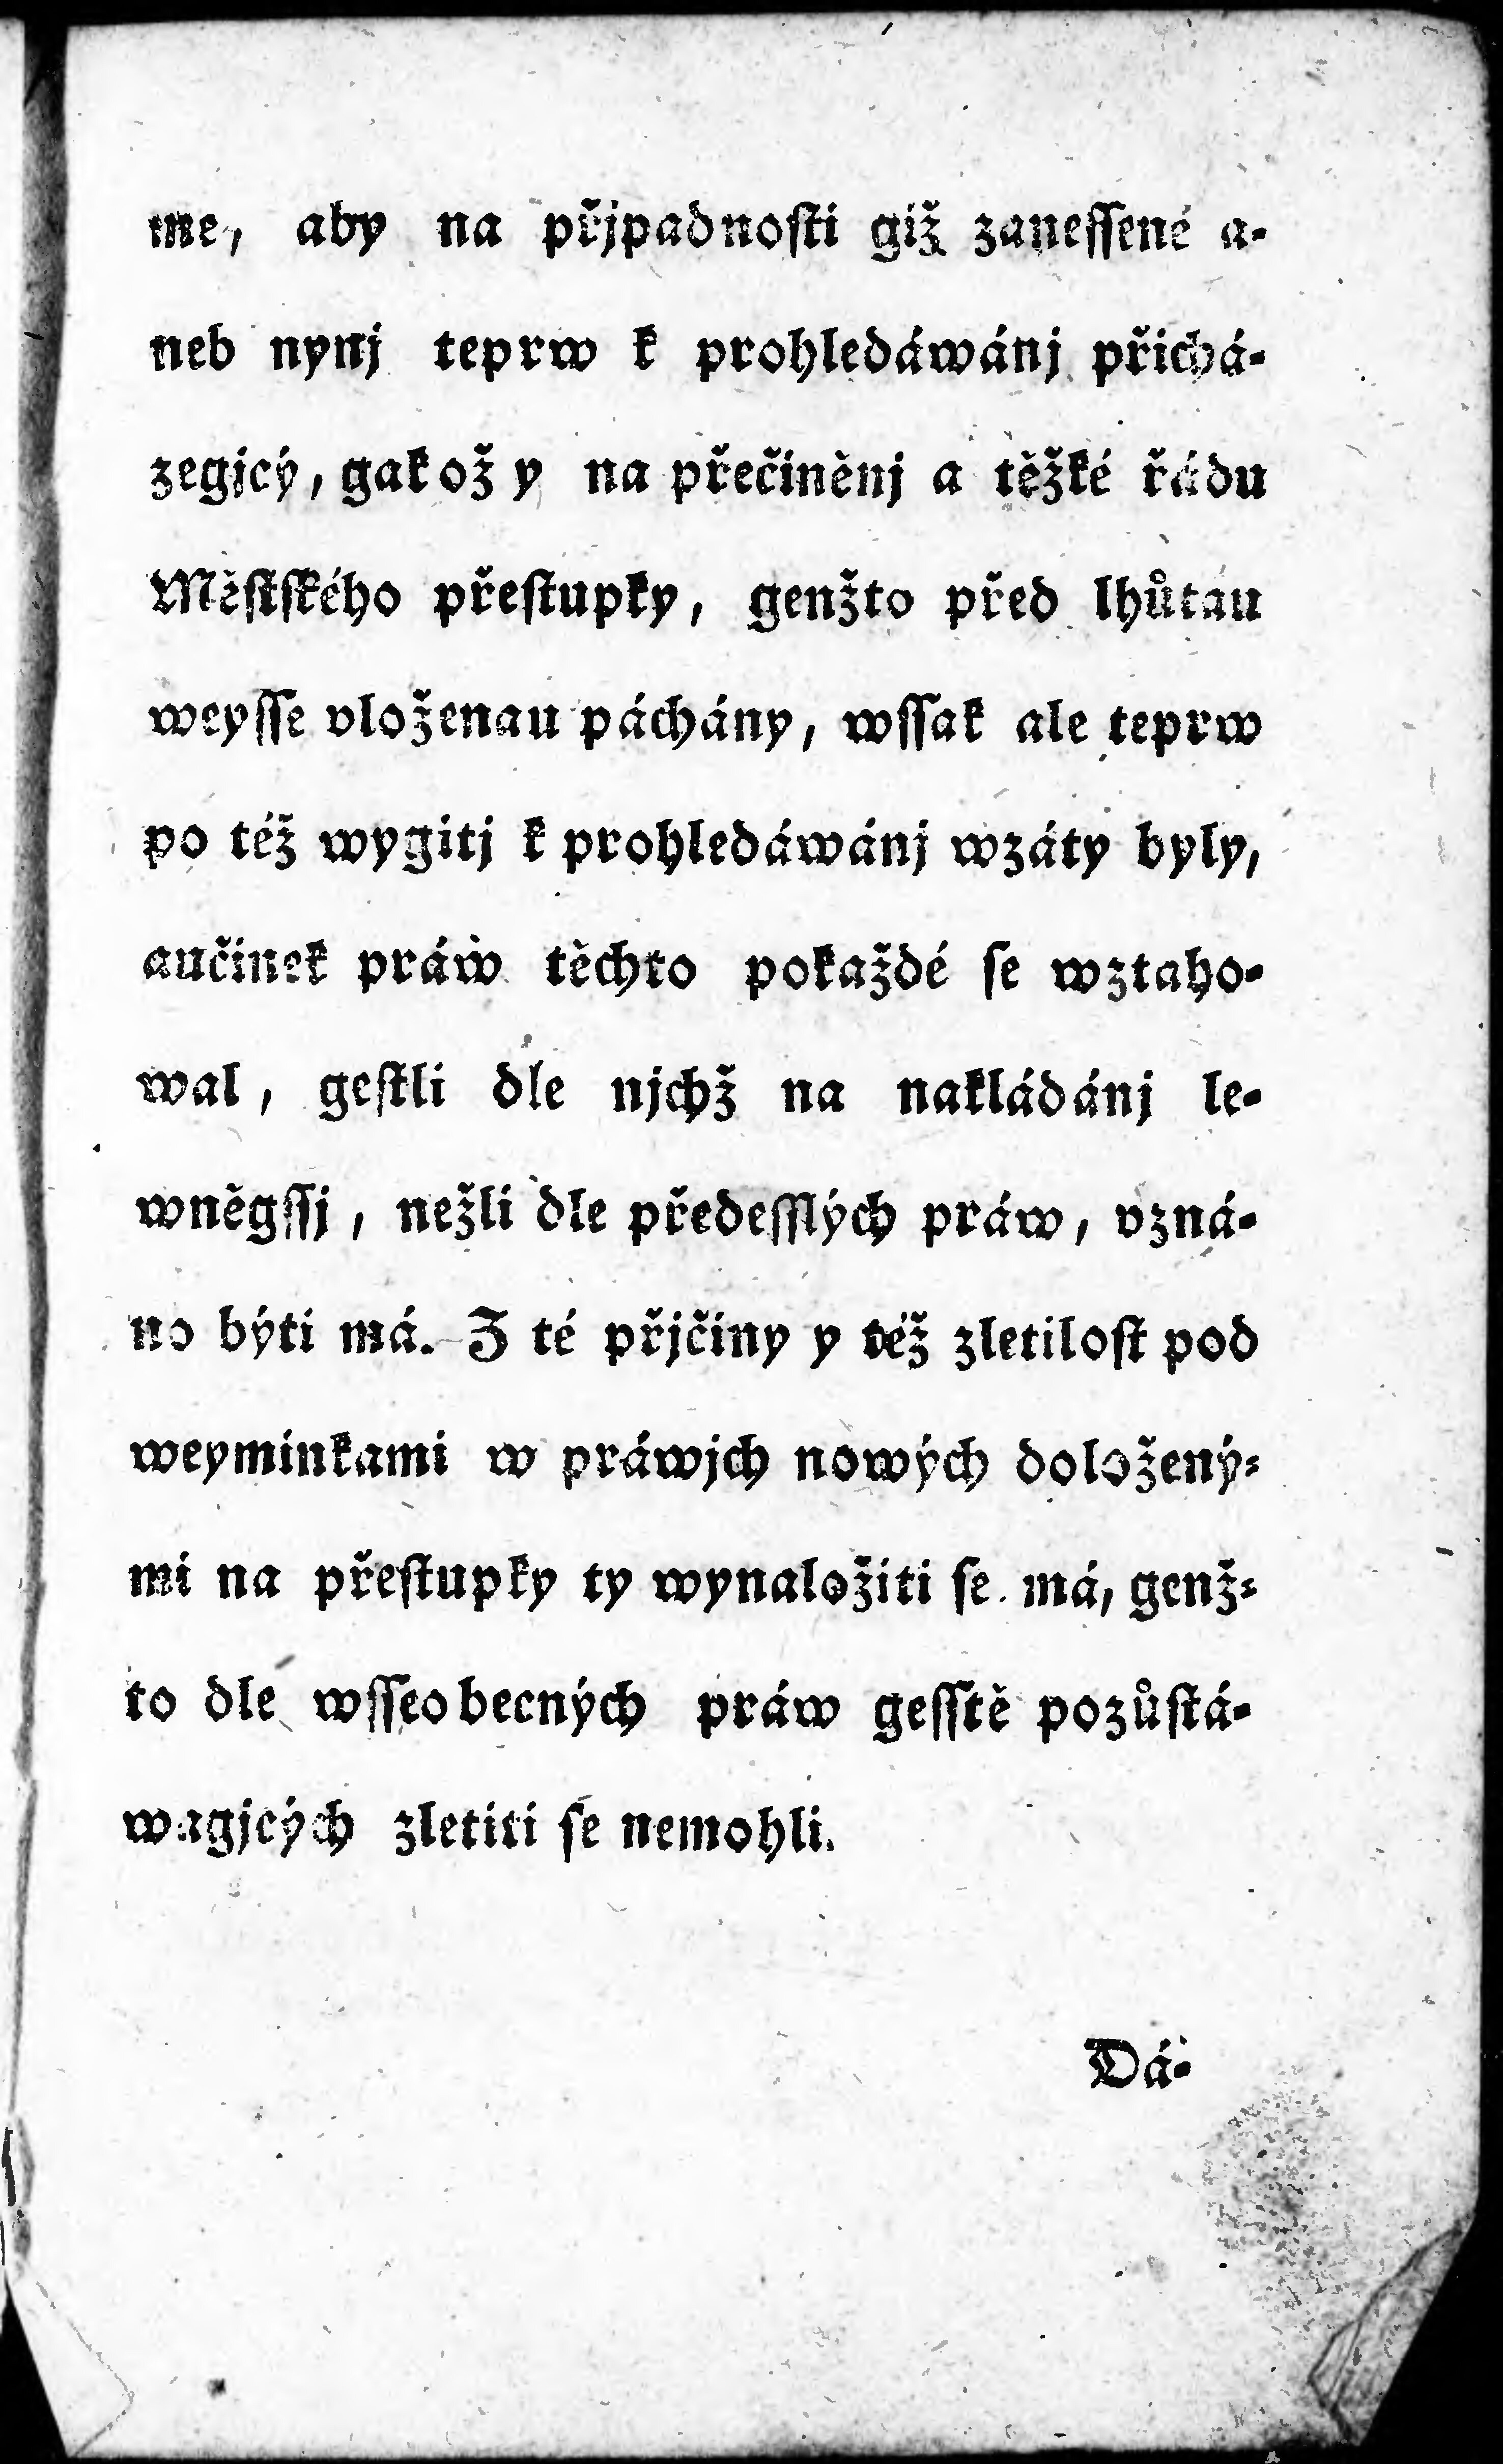 me, aby na přjpadnoſti giž zaneſſené a-
neb nynj teprw k prohledáwánj přichá-
zegjcý, gakož y na přečiněnj a těžké řádu
Měſtſkého přeſtupky, genžto před lhůtau
weyſſe vloženau páchány, wſſak ale teprw
po též wygitj k prohledáwánj wzáty byly,
aučinek práw těchto pokaždé ſe wztaho-
wal, geſtli dle njchž na nakládánj le-
wněgſſj, nežli dle předeſſlých práw, vzná-
no býti má. Z té přjčiny y též zletiloſt pod
weyminkami w práwjch nowých doložený-
mi na přeſtupky ty wynaložiti ſe má, genž-
to dle wſſeobecných práw geſſtě pozůſtá-
wagjcých zletiti ſe nemohli.
Dá-